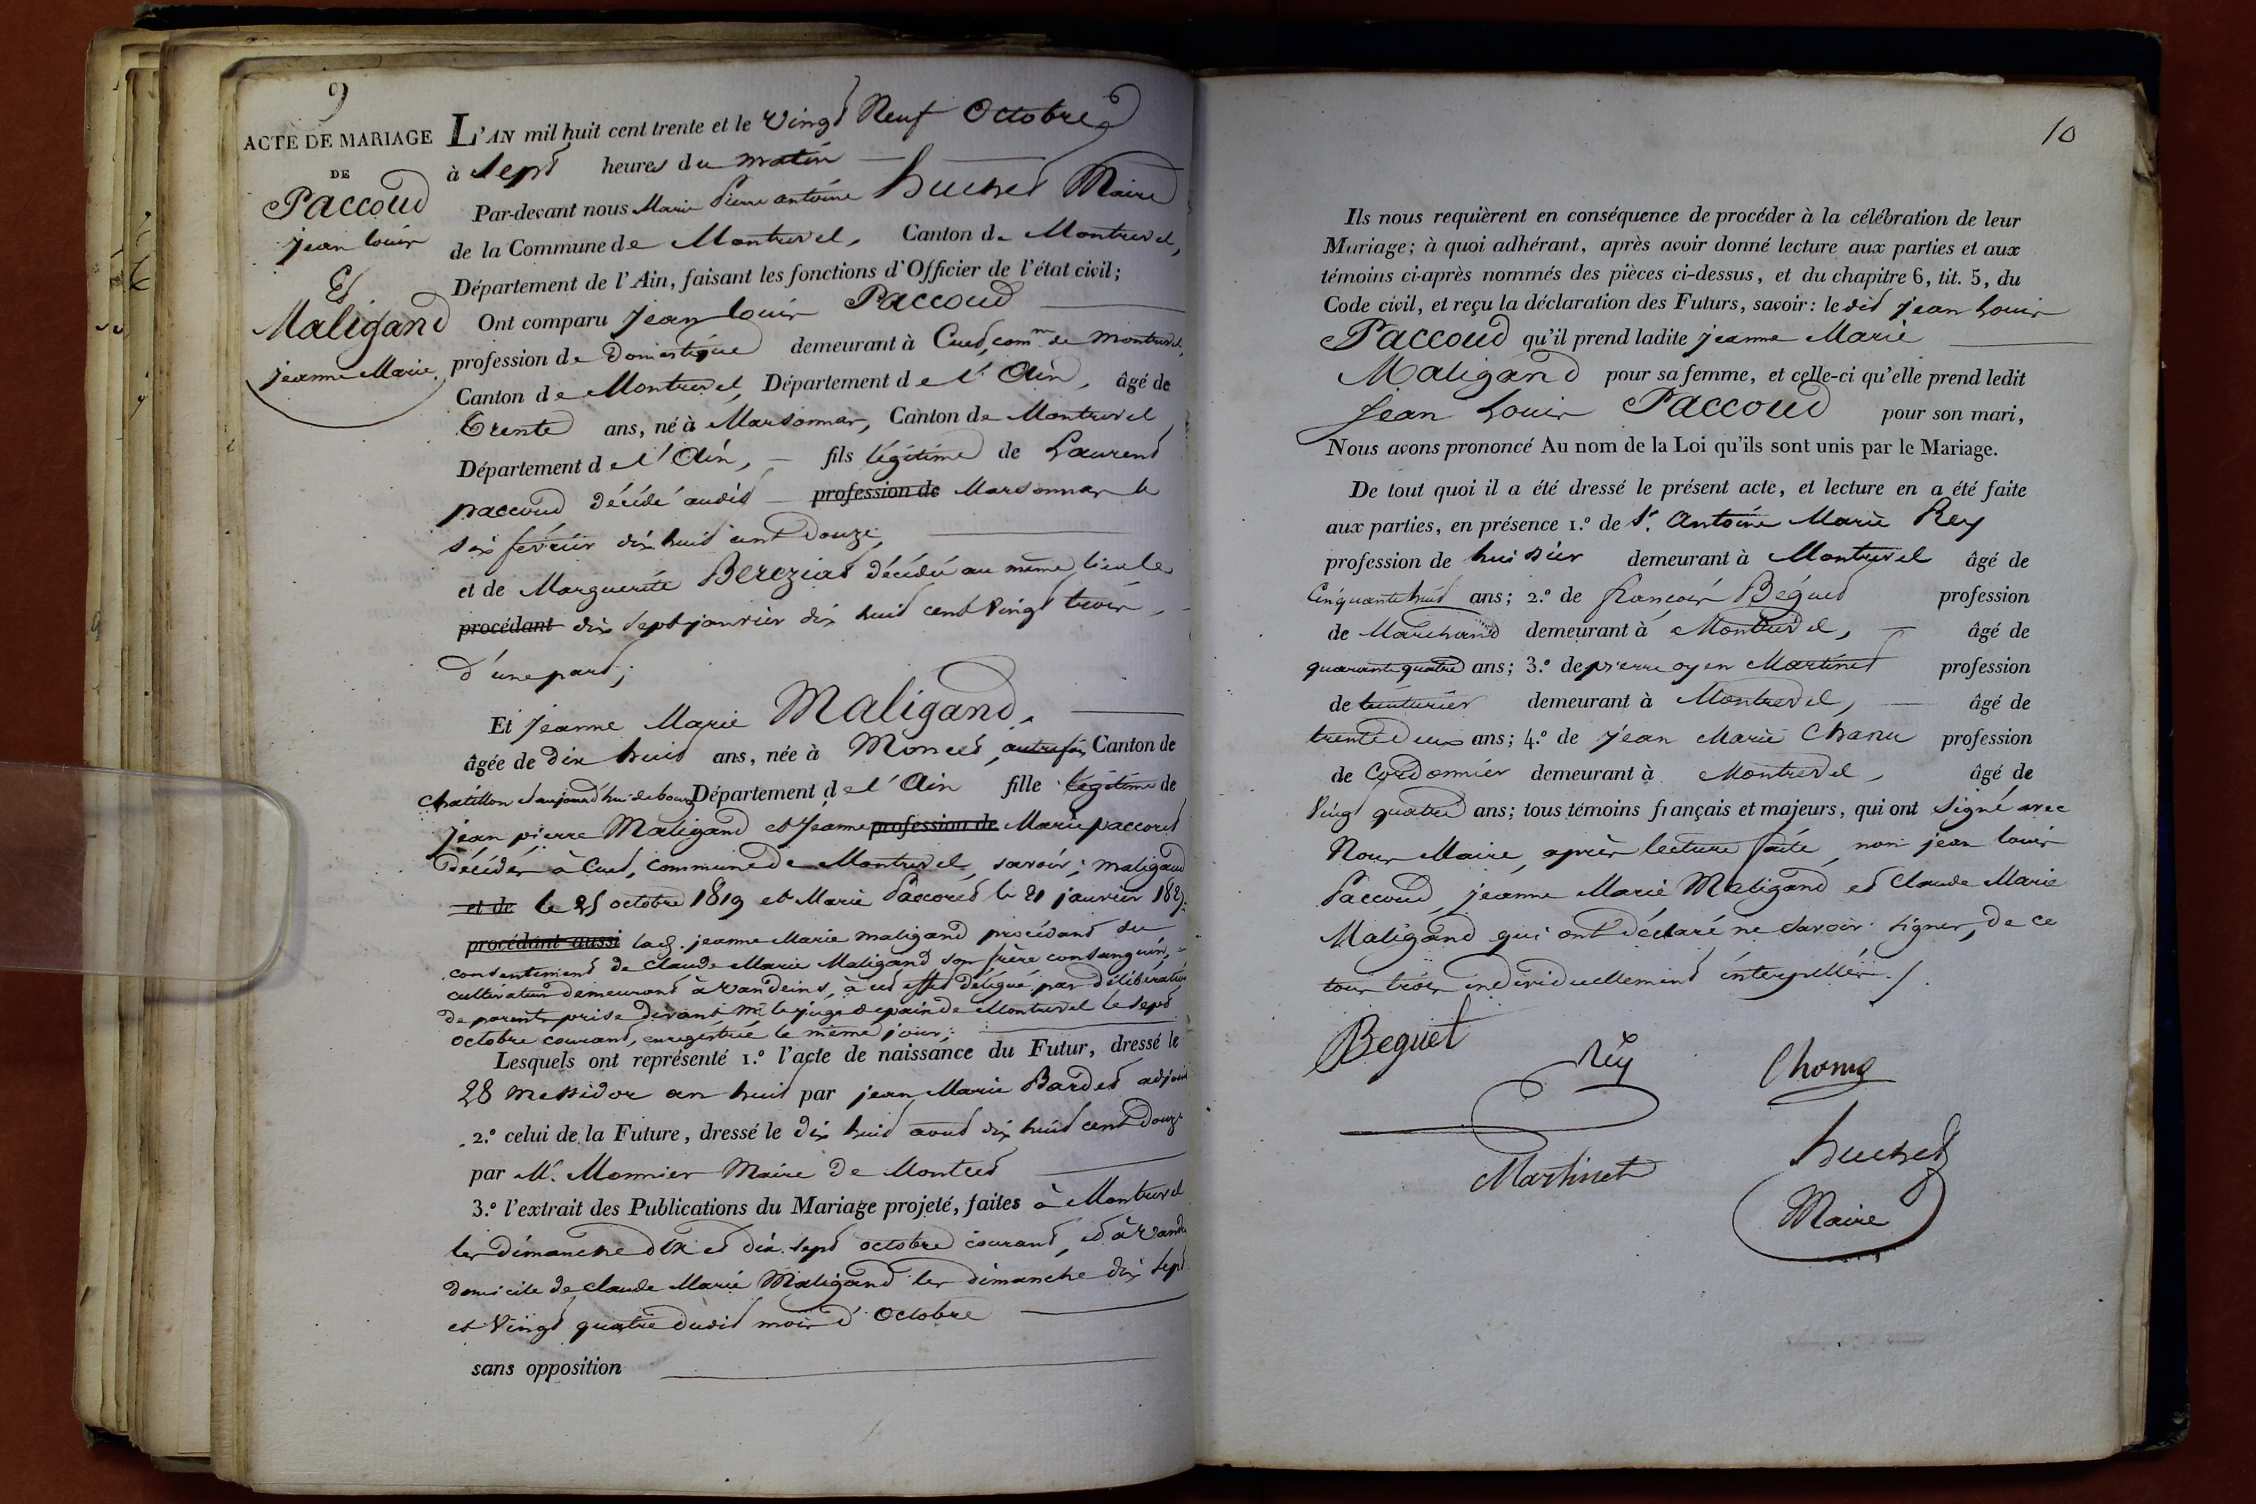 9
ACTE DE MARIAGE
DE
Paccoud
jean louis
Et
Maligand
jeanne Marie
L'AN mil huit cent trente et le Vingt Neuf Octobre
à sept heures du matin
Par-devant nous Marie Pierre antoine huchet Maire
de la Commune de Montrevel, Canton de Montrevel,
Département de l'Ain, faisant les fonctions d'Officier de l'état civil;
Ont comparu jean louis Paccoud
profession de Domestique demeurant à Cuet, com.ne de Montrevel,
Canton de Montrevel, Département de l'Ain, âgé de
Trente ans, né à Marsonnas, Canton de Montrevel,
Département de l'Ain, fils légitime de Laurent
paccoud décédé audit profession de Marsonnas le
six février dix huit cent Douze,
et de Marguerite Bereziat décédée au même lieu le
procédant dix sept janvier dix huit cent Vingt trois,
d'une part;
Et jeanne Marie Maligand,
âgée de dix huit ans, née à Moncet, autrefois Canton de
Chatillon et aujourd'hui de bourg Département de l'Ain fille légitime de
jean pierre Maligand et jeanne profession de Marie paccoud
Décédés à Cuet, commune de Montrevel, savoir; maligand
et de le 25 octobre 1819 et Marie Paccoud le 21 janvier
procédant aussi lad. jeanne Marie maligand procédant du
consentement de claude Marie Maligand son frère consanguin,
cultivateur demeurant à vandeins, à cet effet délégué par délibération
de parents prise devant Mr. le juge de paix de Montrevel le sept
octobre courant, enregistrée le même jour;
Lesquels ont représenté 1.º l'acte de naissance du Futur, dressé le
28 messidor an huit par jean Marie Bardet adjoint
2.º celui de la Future, dressé le dix huit aout dix huit cent Douze
par Mr. Monnier Maire de Montcet
3.º l'extrait des Publications du Mariage projeté, faites à Montrevel
les dimanche dix et dix sept octobre courant, et à
domicile de claude Marie Maligand les dimanche dix sept
et Vingt quatre dudit mois d'Octobre
sans opposition
10
Ils nous requièrent en conséquence de procéder à la célébration de leur
Mariage; à quoi adhérant, après avoir donné lecture aux parties et aux
témoins ci-après nommés des pièces ci-dessus, et du chapitre 6, tit. 5, du
Code civil, et reçu la déclaration des Futurs, savoir: le dit jean Louis
Paccoud qu'il prend ladite jeanne Marie
Maligand pour sa femme, et celle-ci qu'elle prend ledit
Jean Louis Paccoud pour son mari,
Nous avons prononcé Au nom de la Loi qu'ils sont unis par le Mariage.
De tout quoi il a été dressé le présent acte, et lecture en a été faite
aux parties, en présence 1.º de Sr. Antoine Marie Rey
profession de huissier demeurant à Montrevel âgé de
Cinquante huit ans; 2.º de françois Béguet profession
de Marchand demeurant à Montrevel, âgé de
quarante quatre ans; 3.º de pierre oyen Martinet profession
de teinturier demeurant à Montrevel, âgé de
trente Deux ans; 4.º de jean Marie Chanu profession
de Cordonnier demeurant à Montrevel, âgé de
Vingt quatre ans; tous témoins français et majeurs, qui ont signé avec
Nous Maire, après lecture faite, non jean louis
Paccoud, jeanne Marie Maligand et Claude Marie
Maligand qui ont déclaré ne savoir signer, de ce
tous trois individuellement interpellés./.
Beguet
Rey
Martinet
huchet
Maire